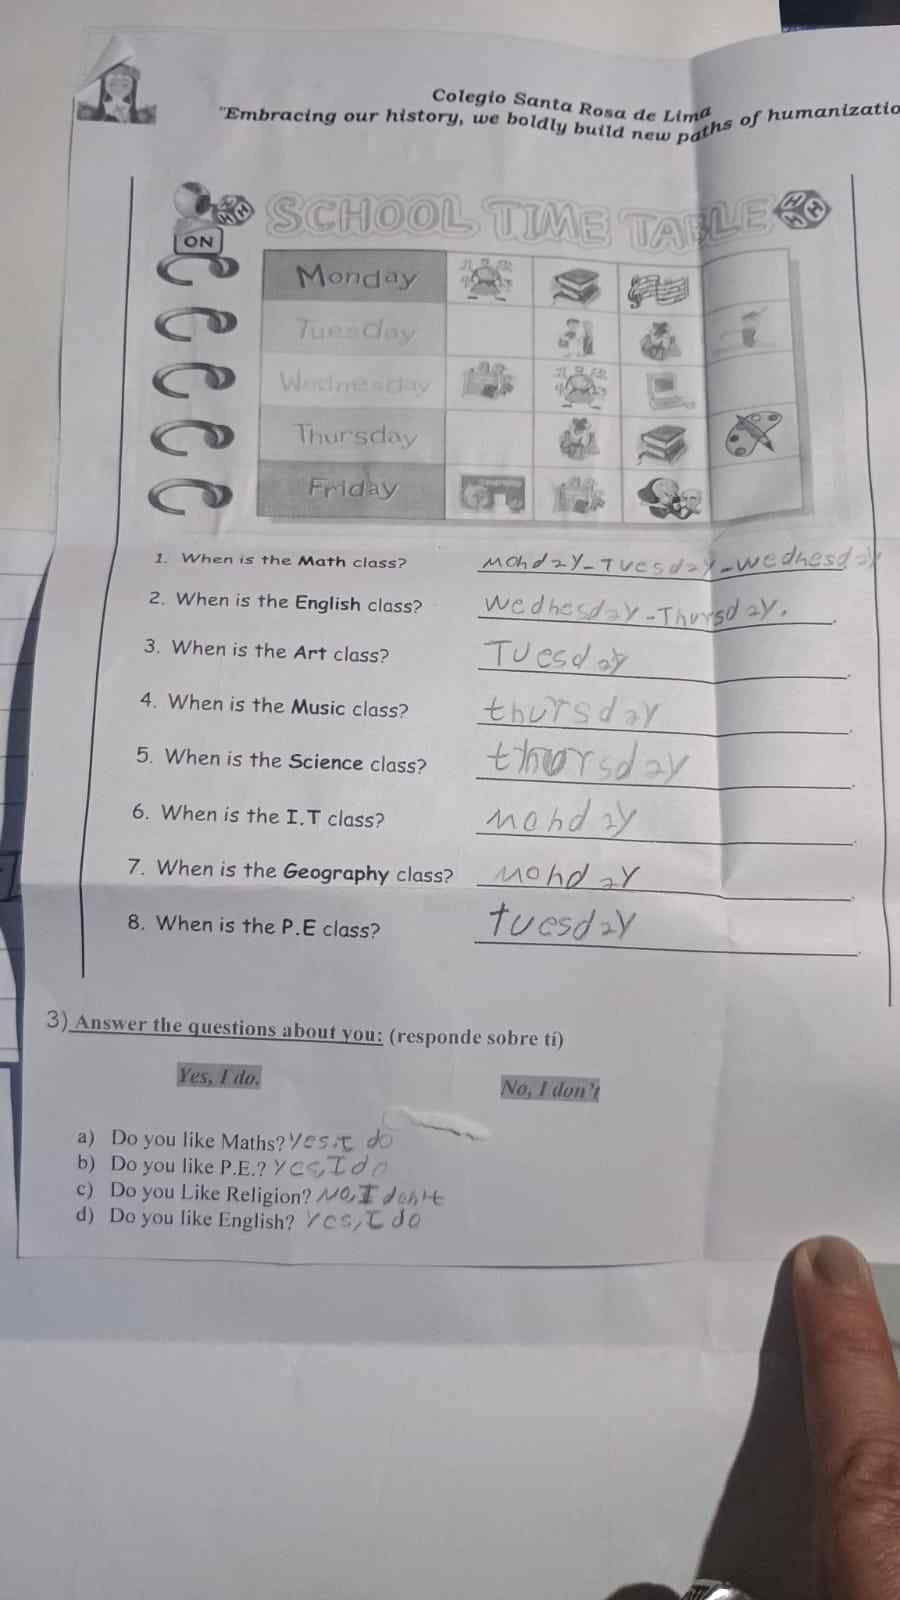 Colegio Santa Rosa de Lima
"Embracing our history, we boldly build new paths of humanizatio
SCHOOL TIME TABLE
ON
Monday
Tuesday
Wednesday
Thursday
Friday
1. When is the Math class? Monday-Tuesday-Wednesday
2. When is the English class? Wednesday-Thursday.
3. When is the Art class? Tuesday
4. When is the Music class? thursday
5. When is the Science class? thursday
6. When is the I.T class? Monday
7. When is the Geography class? Monday
8. When is the P.E class? tuesday
3) Answer the questions about you: (responde sobre tí)
Yes, I do. No, I don't
a) Do you like Maths? Yes, I do
b) Do you like P.E.? Yes, I do
c) Do you Like Religion? No, I don't
d) Do you like English? Yes, I do